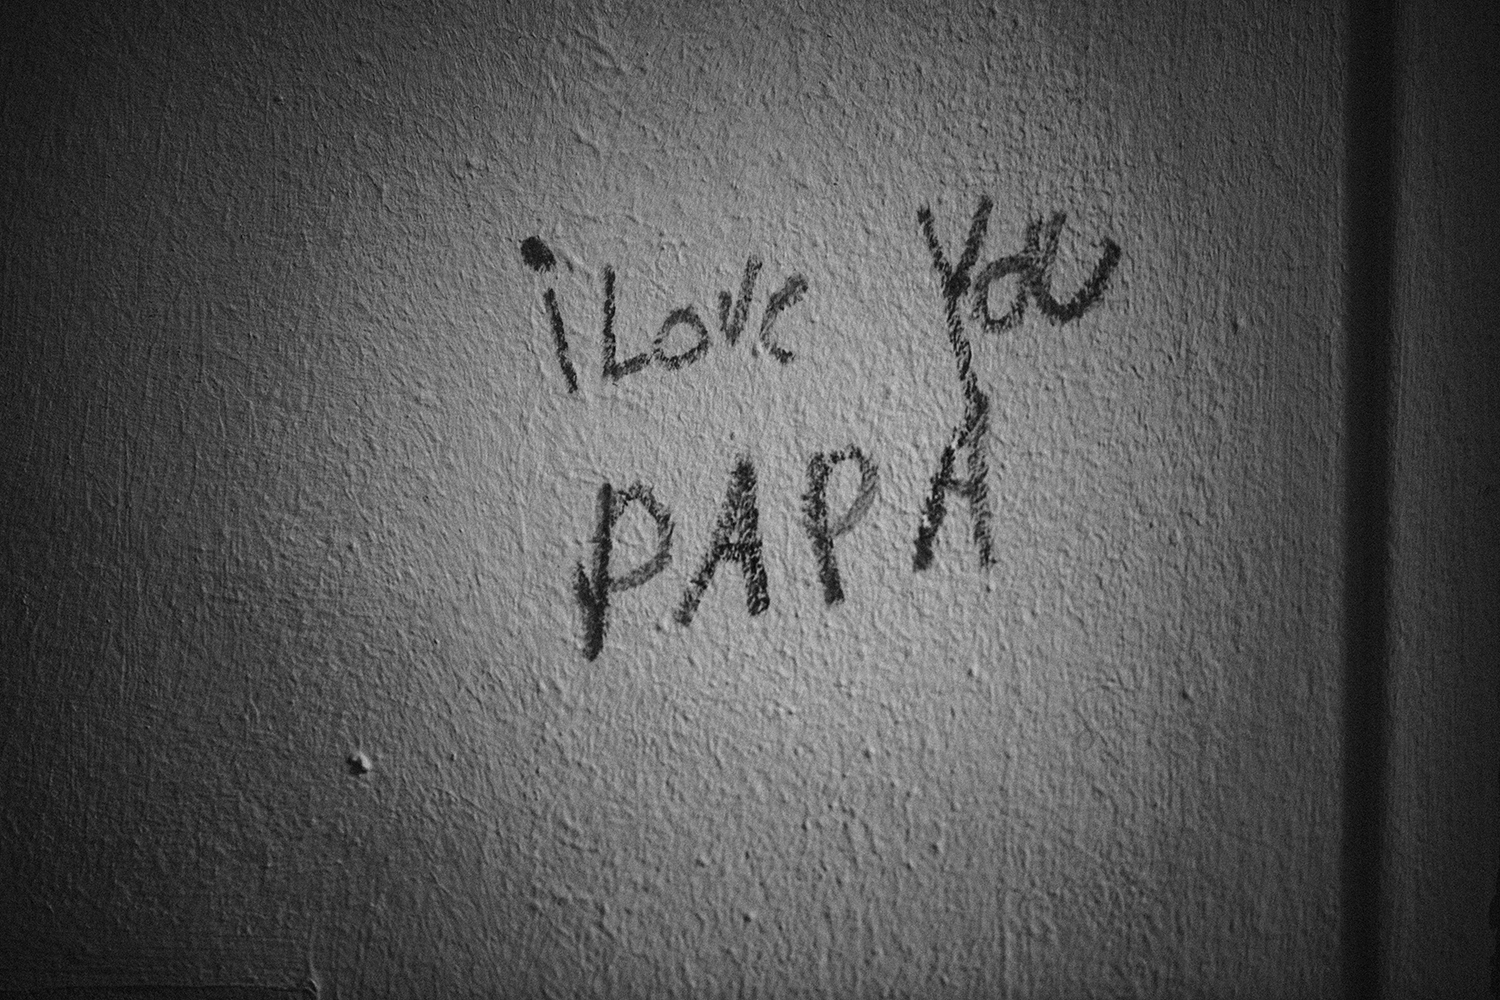 i Love You
PAPA